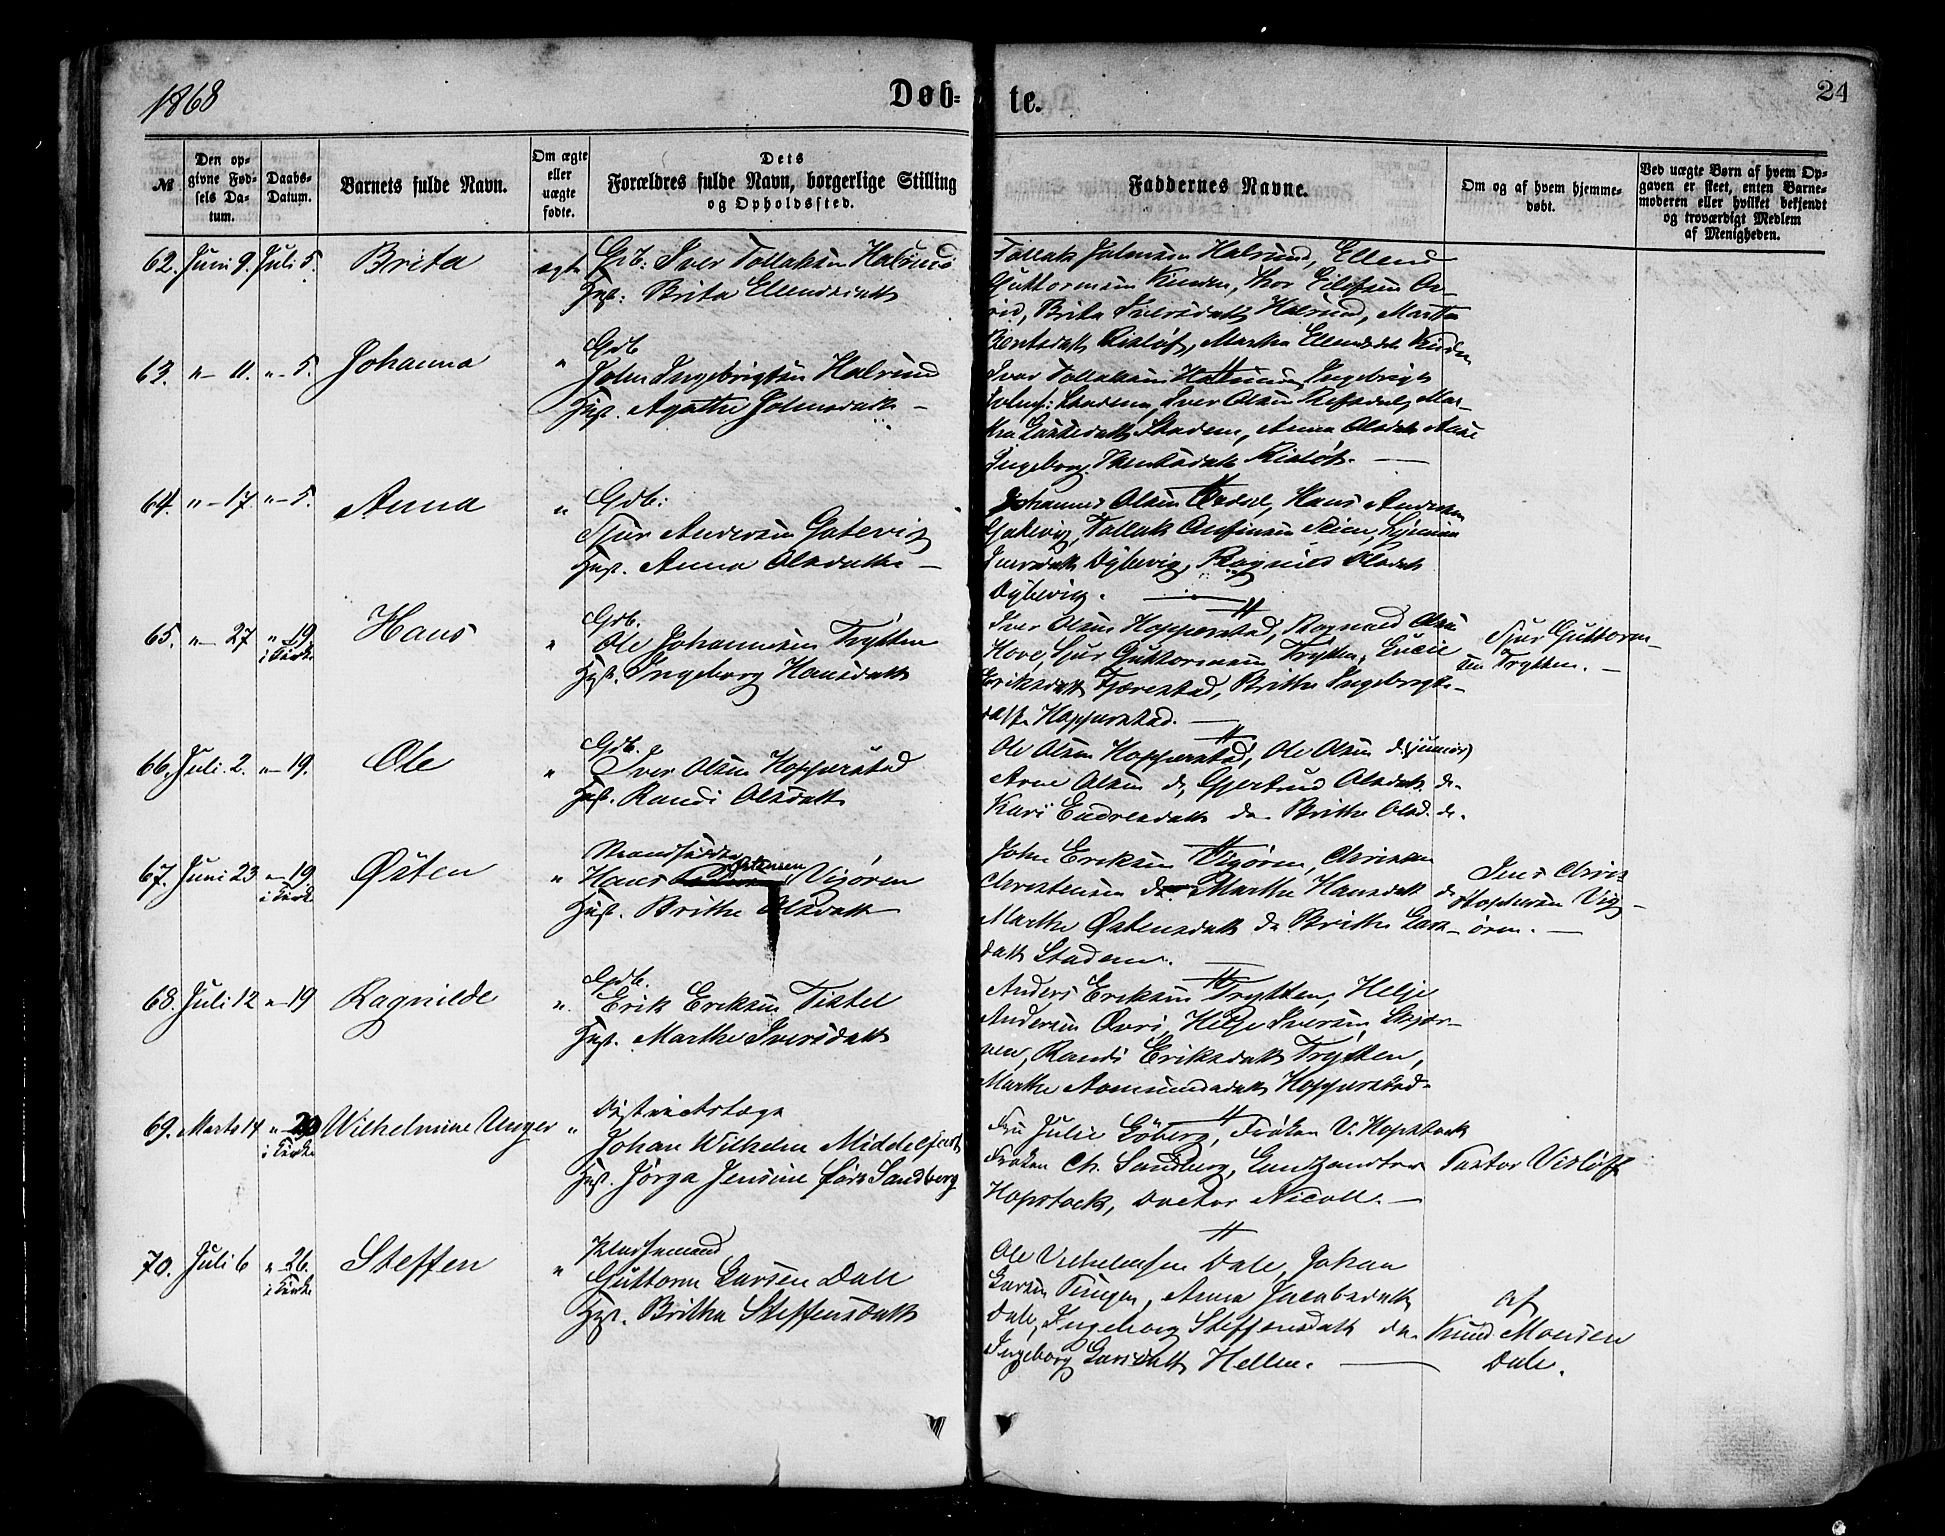 1868
Døb=te.
24
№
Den op=givne Fød=sels Da=tum.
Daabs=Datum.
Barnets fulde Navn.
Om ægte eller uægte fødte.
Dets Forældres fulde Navn, borgerlige Stilling og Opholdssted.
Faddernes Navne.
Om og af hvem hjemme=døbt.
Ved uægte Børn af hvem Op=gaven er skeet, enten Barne=moderen eller hvilket bekjendt og troværdigt Medlem af Menigheden.
62. Juni 9. Juli 5. Brita ægte Gdb. Iver Tollaksen Halsund
Hust: Brita Ellendsdatt
Tollak Johnsen Halsund, Ellend
Guttormsen
Brita Iversdatt Halsund, Martha
63. "– 11. "– 5. Johanna " Gdb
John Ingebrigtsen Halsund
Hust. Agathe Johnsdatt –
Iver Tollaksen Halsund, Ingebrigt
Iver Olsen Refsdal, Mar–
Anna Olsdatt
Ingeborg
64. "– 17. "– 5. Anna " Gdb:
Sjur Andersen Gatevig
Hust. Anna Olsdatt –
Johannes Olsen Hans Andersen
Gatevig, Tollak
Iversdatt Dybevig, Ragnild Olsdatt
Dybevig.
65. "– 27 "– 19. i Kirke Hans " Gdb.
Ole Johannesen Trytten
Hust. Ingeborg Hansdatt
Iver Olsen Hopperstad, Rognald Olsen
Hove, Sjur Guttormsen Trytten, Lucie
Eriksdatt Brithe Ingebrigts–
datt Hopperstad. –
Sjur Guttorm–
sen Trytten. –
66. Juli 2. "– 19. Ole " Gdb.
Iver Olsen Hopperstad
Hust. Randi Olsdatt
Ole Olsen Hopperstad, Ole Olsen do (junior)
Arne Olsen do, Gjertrud Olsdatt do–
Kari Endresdatt do– Brithe Olsd. do.
67. Juni 23 "– 19 i Kirke Østen " Strandsidder
Hans Østensen Vigøren
Hust. Brithe Olsdatt
John Eriksen Vigøren, Christen
Christensen do Marthe Hansdatt do
Marthe Østensdatt do Brithe Lars–
datt Stadem.
Jens Chris–
tophersen Vig–
øren. –
68. Juli 12 "– 19 Ragnilde " Gdb.
Erik Eriksen Tistel
Hust. Marthe Iversdatt
Anders Eriksen Trytten, Helje
Andersen Øvri, Helje Iversen,
Randi Eriksdatt Trytten,
Marthe Aamundsdatt Hopperstad–
69. Marts 14 "– 20 i Kirke Wilhelmine Unger " Distriktslæge
Johan Wilhelm Middelfart
Hust. Jørga Jensine født Sandberg
Fru Julie Frøken V. Hopstock
Frøken Ch. Sandberg,
Hopstock, Doctor Nicoll. –
Pastor Vislöff
70. Juli 6 "– 26. i Kirke Steffen " Pladsemand
Guttorm Larsen Dale
Hust. Britha Steffensdatt
Ole Vilhelmsen Dale, Johan
Larsen Anna Jacobsdatt
Dale, Ingeborg Steffensdatt do–
Ingeborg Larsdatt Hellen. –
af
Knud Monsen
Dale.